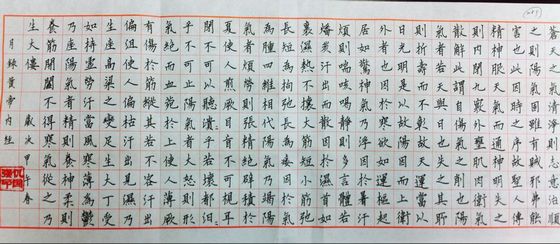 蒼天之氣清淨則志意治順
之則陽氣固雖有賊邪弗能
害也此因時之序故聖人傳
精神服天氣而通神明失之
則內閉九竅外壅肌肉衛氣
散解此謂自傷氣之削也陽
氣者若天與日失其所
則折壽而不彰故天運當以
日光明是故陽因而上衛
外者也因於寒欲如運樞起
居如驚神氣乃浮因於暑汗
煩則喘喝靜則多言體若
燔炭汗出而散因於濕首如
裹濕熱不攘大筋緛短小筋弛
長緛短為拘弛長為痿因於氣
為腫四維相代陽氣乃竭陽
氣者煩勞則張精絕辟積於
夏使人煎厥目盲不可以視耳
閉不可以聽潰潰乎若壞都汩汩
乎不可止陽氣者大怒則形
氣絕而血菀於上使人薄厥
有傷於筋縱其若不容汗出
偏沮使人偏枯汗出見濕乃
生痤疿高梁之變足生大丁受
如持虛勞汗當風寒薄為皶鬱
乃痤陽氣者精則養神柔則
養筋開闔不得寒氣從之乃
生大僂 歲次甲午春
月錄黃帝內經